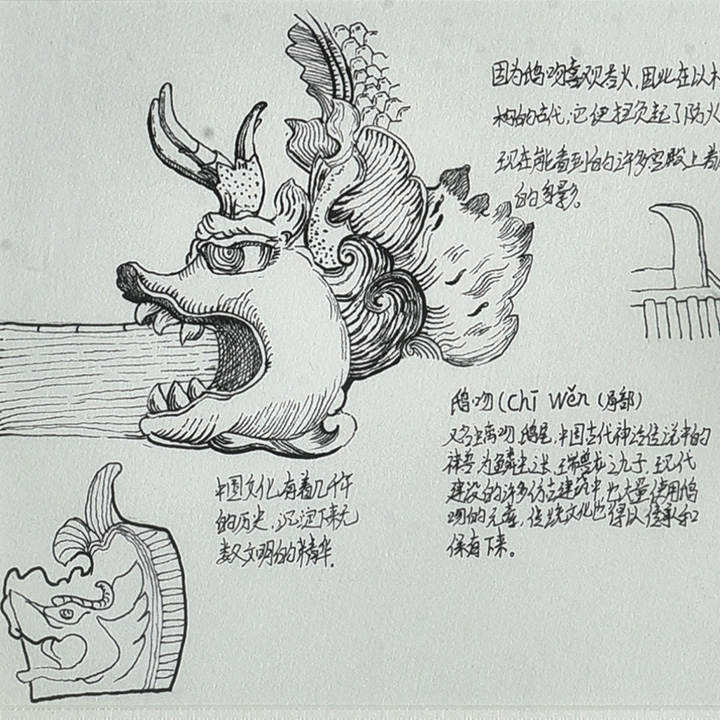 因为鸱吻喜观吞火,因此在以木
构的古代,它便担负起了防火
现在能看到的许多宫殿上都
的身影。
鸱吻(chī wěn(局部)
又名螭吻、鸱尾,中国古代神话传说中的
神兽,为鳞虫之长,瑞兽龙之九子,现代
建设的许多仿古建筑中,也大量使用鸱
吻的元素,传统文化也得以传承和
保存下来。
中国文化有着几千年
的历史,沉淀下来无
数文明的精华.